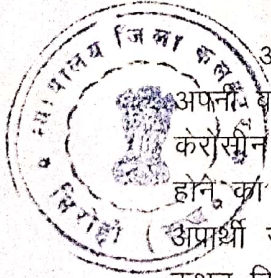 न्यायालय जिला कल
सिरोही
अ
अपनी ब
केरोसीन
होने का
अप्रार्थी